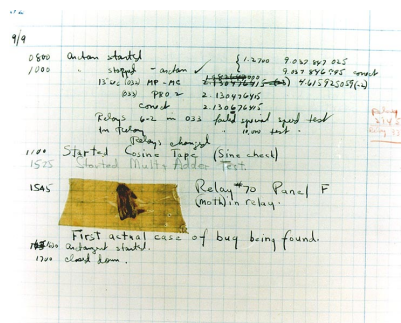 9/9
0800 Antan started { 1.2700 9.037 847 025
1000 " stopped - antan ✓ 9.037 846 995 correct
13"uc (032) MP-MC 2.130476415 4.615925059(-2)
(033) PRO 2 2.130476415
correct 2.130676415
Relays 6-2 in 033 failed special speed test
In Relay " 10,000 test.
Relays changed
Relay
1100 Started Cosine Tape (Sine check)
1525 Started Mult+ Adder Test.
1545 Relay #70 Panel F
(moth) in relay.
First actual case of bug being found.
1630 antangent started.
1700 closed down.